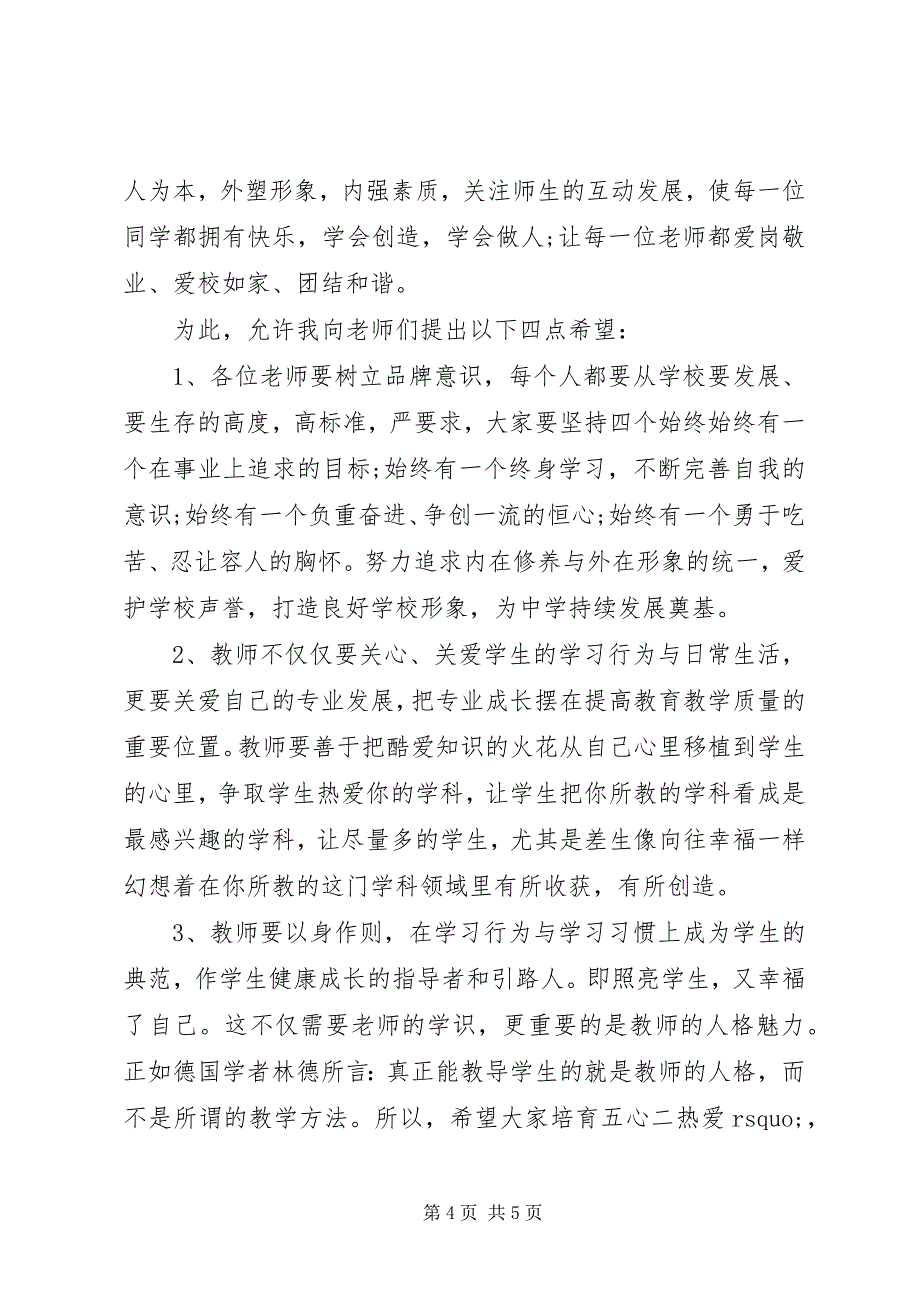 人为本，外塑形象，内强素质，关注师生的互动发展，使每一位
同学都拥有快乐，学会创造，学会做人;让每一位老师都爱岗敬
业、爱校如家、团结和谐。
为此，允许我向老师们提出以下四点希望：
1、各位老师要树立品牌意识，每个人都要从学校要发展、
要生存的高度，高标准，严要求，大家要坚持四个始终始终有一
个在事业上追求的目标;始终有一个终身学习，不断完善自我的
意识;始终有一个负重奋进、争创一流的恒心;始终有一个勇于吃
苦、忍让容人的胸怀。努力追求内在修养与外在形象的统一，爱
护学校声誉，打造良好学校形象，为中学持续发展奠基。
2、教师不仅仅要关心、关爱学生的学习行为与日常生活，
更要关爱自己的专业发展，把专业成长摆在提高教育教学质量的
重要位置。教师要善于把酷爱知识的火花从自己心里移植到学生
的心里，争取学生热爱你的学科，让学生把你所教的学科看成是
最感兴趣的学科，让尽量多的学生，尤其是差生像向往幸福一样
幻想着在你所教的这门学科领域里有所收获，有所创造。
3、教师要以身作则，在学习行为与学习习惯上成为学生的
典范，作学生健康成长的指导者和引路人。即照亮学生，又幸福
了自己。这不仅需要老师的学识，更重要的是教师的人格魅力。
正如德国学者林德所言：真正能教导学生的就是教师的人格，而
不是所谓的教学方法。所以，希望大家培育五心二热爱 rsquo;，
第 4 页 共 5 页